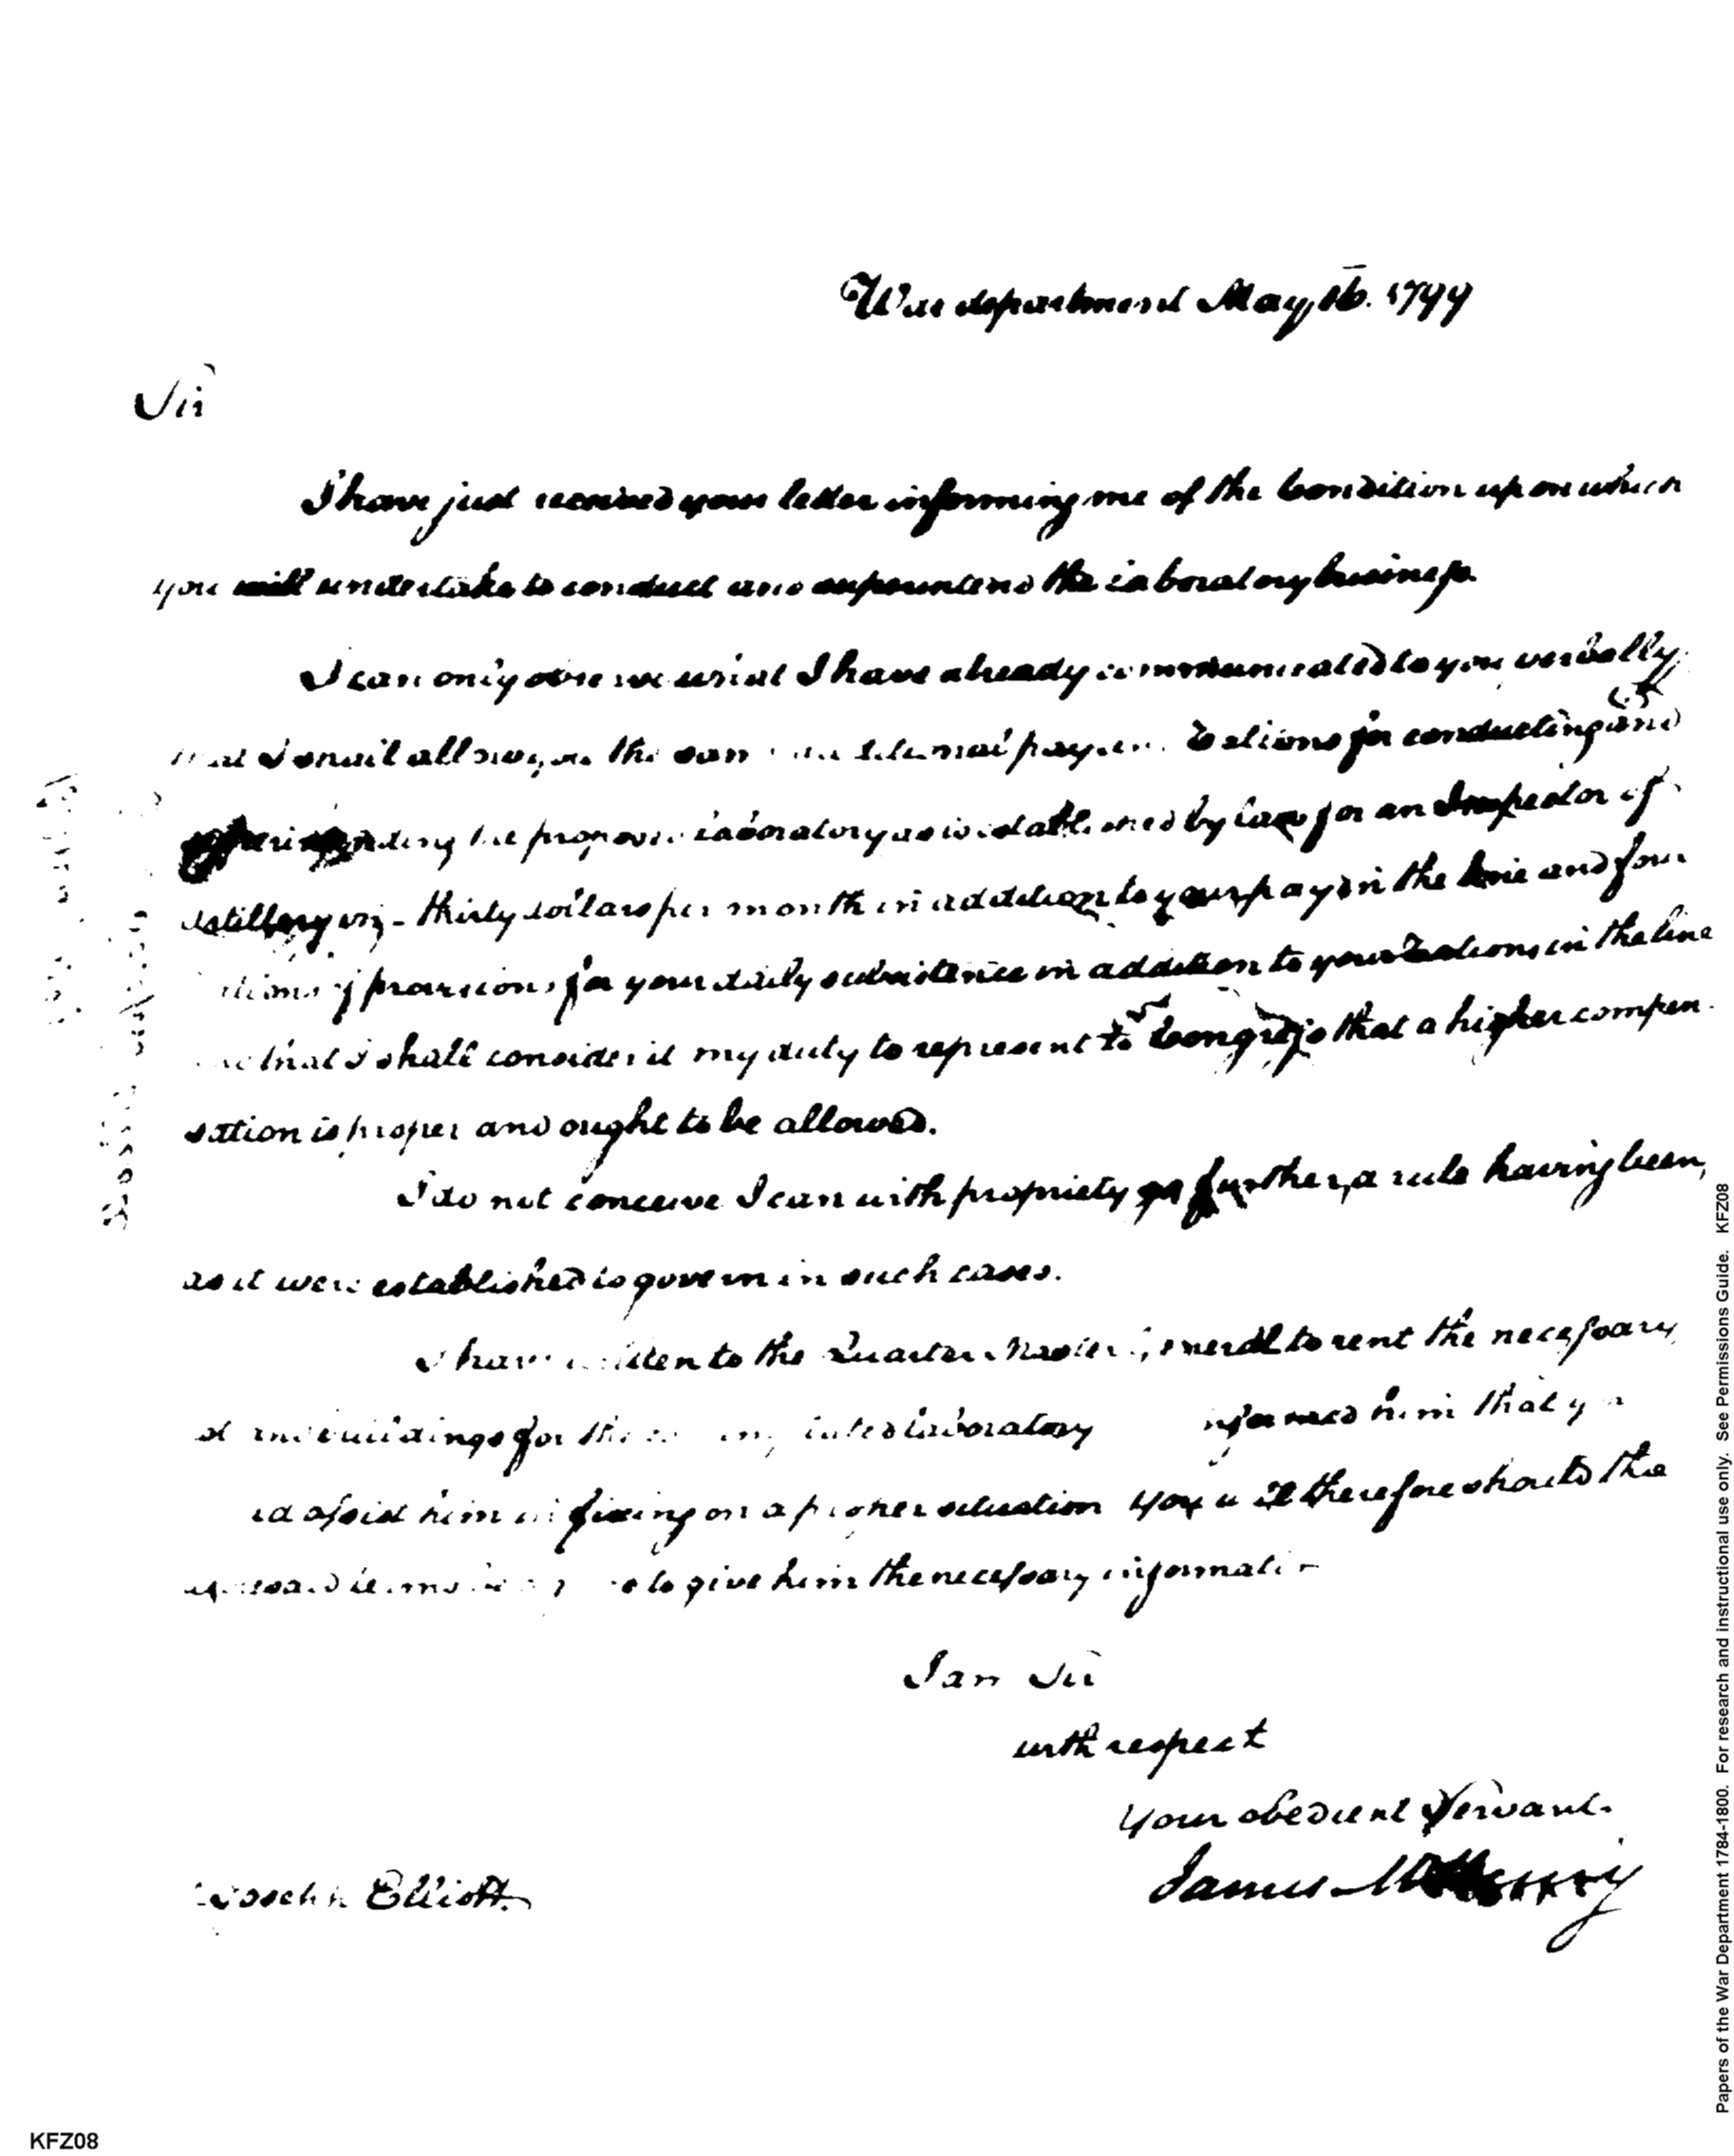 War department May, 16. 1799
Sir
I have just received your letter informing me of the Condition upon which
you will undertake to conduct and superintend the laboratory business.
I can only observe what I have already communicated to you verbally
that I shall allow you the same additional pay and Rations for conducting and
superintending the proposed laboratory as is established by law for an Inspector of
Artillery viz - thirty dollars per month in addition to your pay in the line and four
rations of provisions for your daily subsistence in addition to your Rations in the line
that I shall consider it my duty to represent to Congress that a higher compen
sation is proper and ought to be allowed.
I do not conceive I can with propriety go further, a rule having been,
as it were established to govern in such cases.
I have written to the Quarter Master General to rent the necessary
buildings for the laboratory informed him that you
assist him in fixing on a proper situation You will therefore should the
to give him the necessary information
I am Sir
with respect
Your obedient Servant.
James McHenry
Joseph Elliott
Papers of the War Department 1784-1800. For research and instructional use only. See Permissions Guide. KFZ08
KFZ08